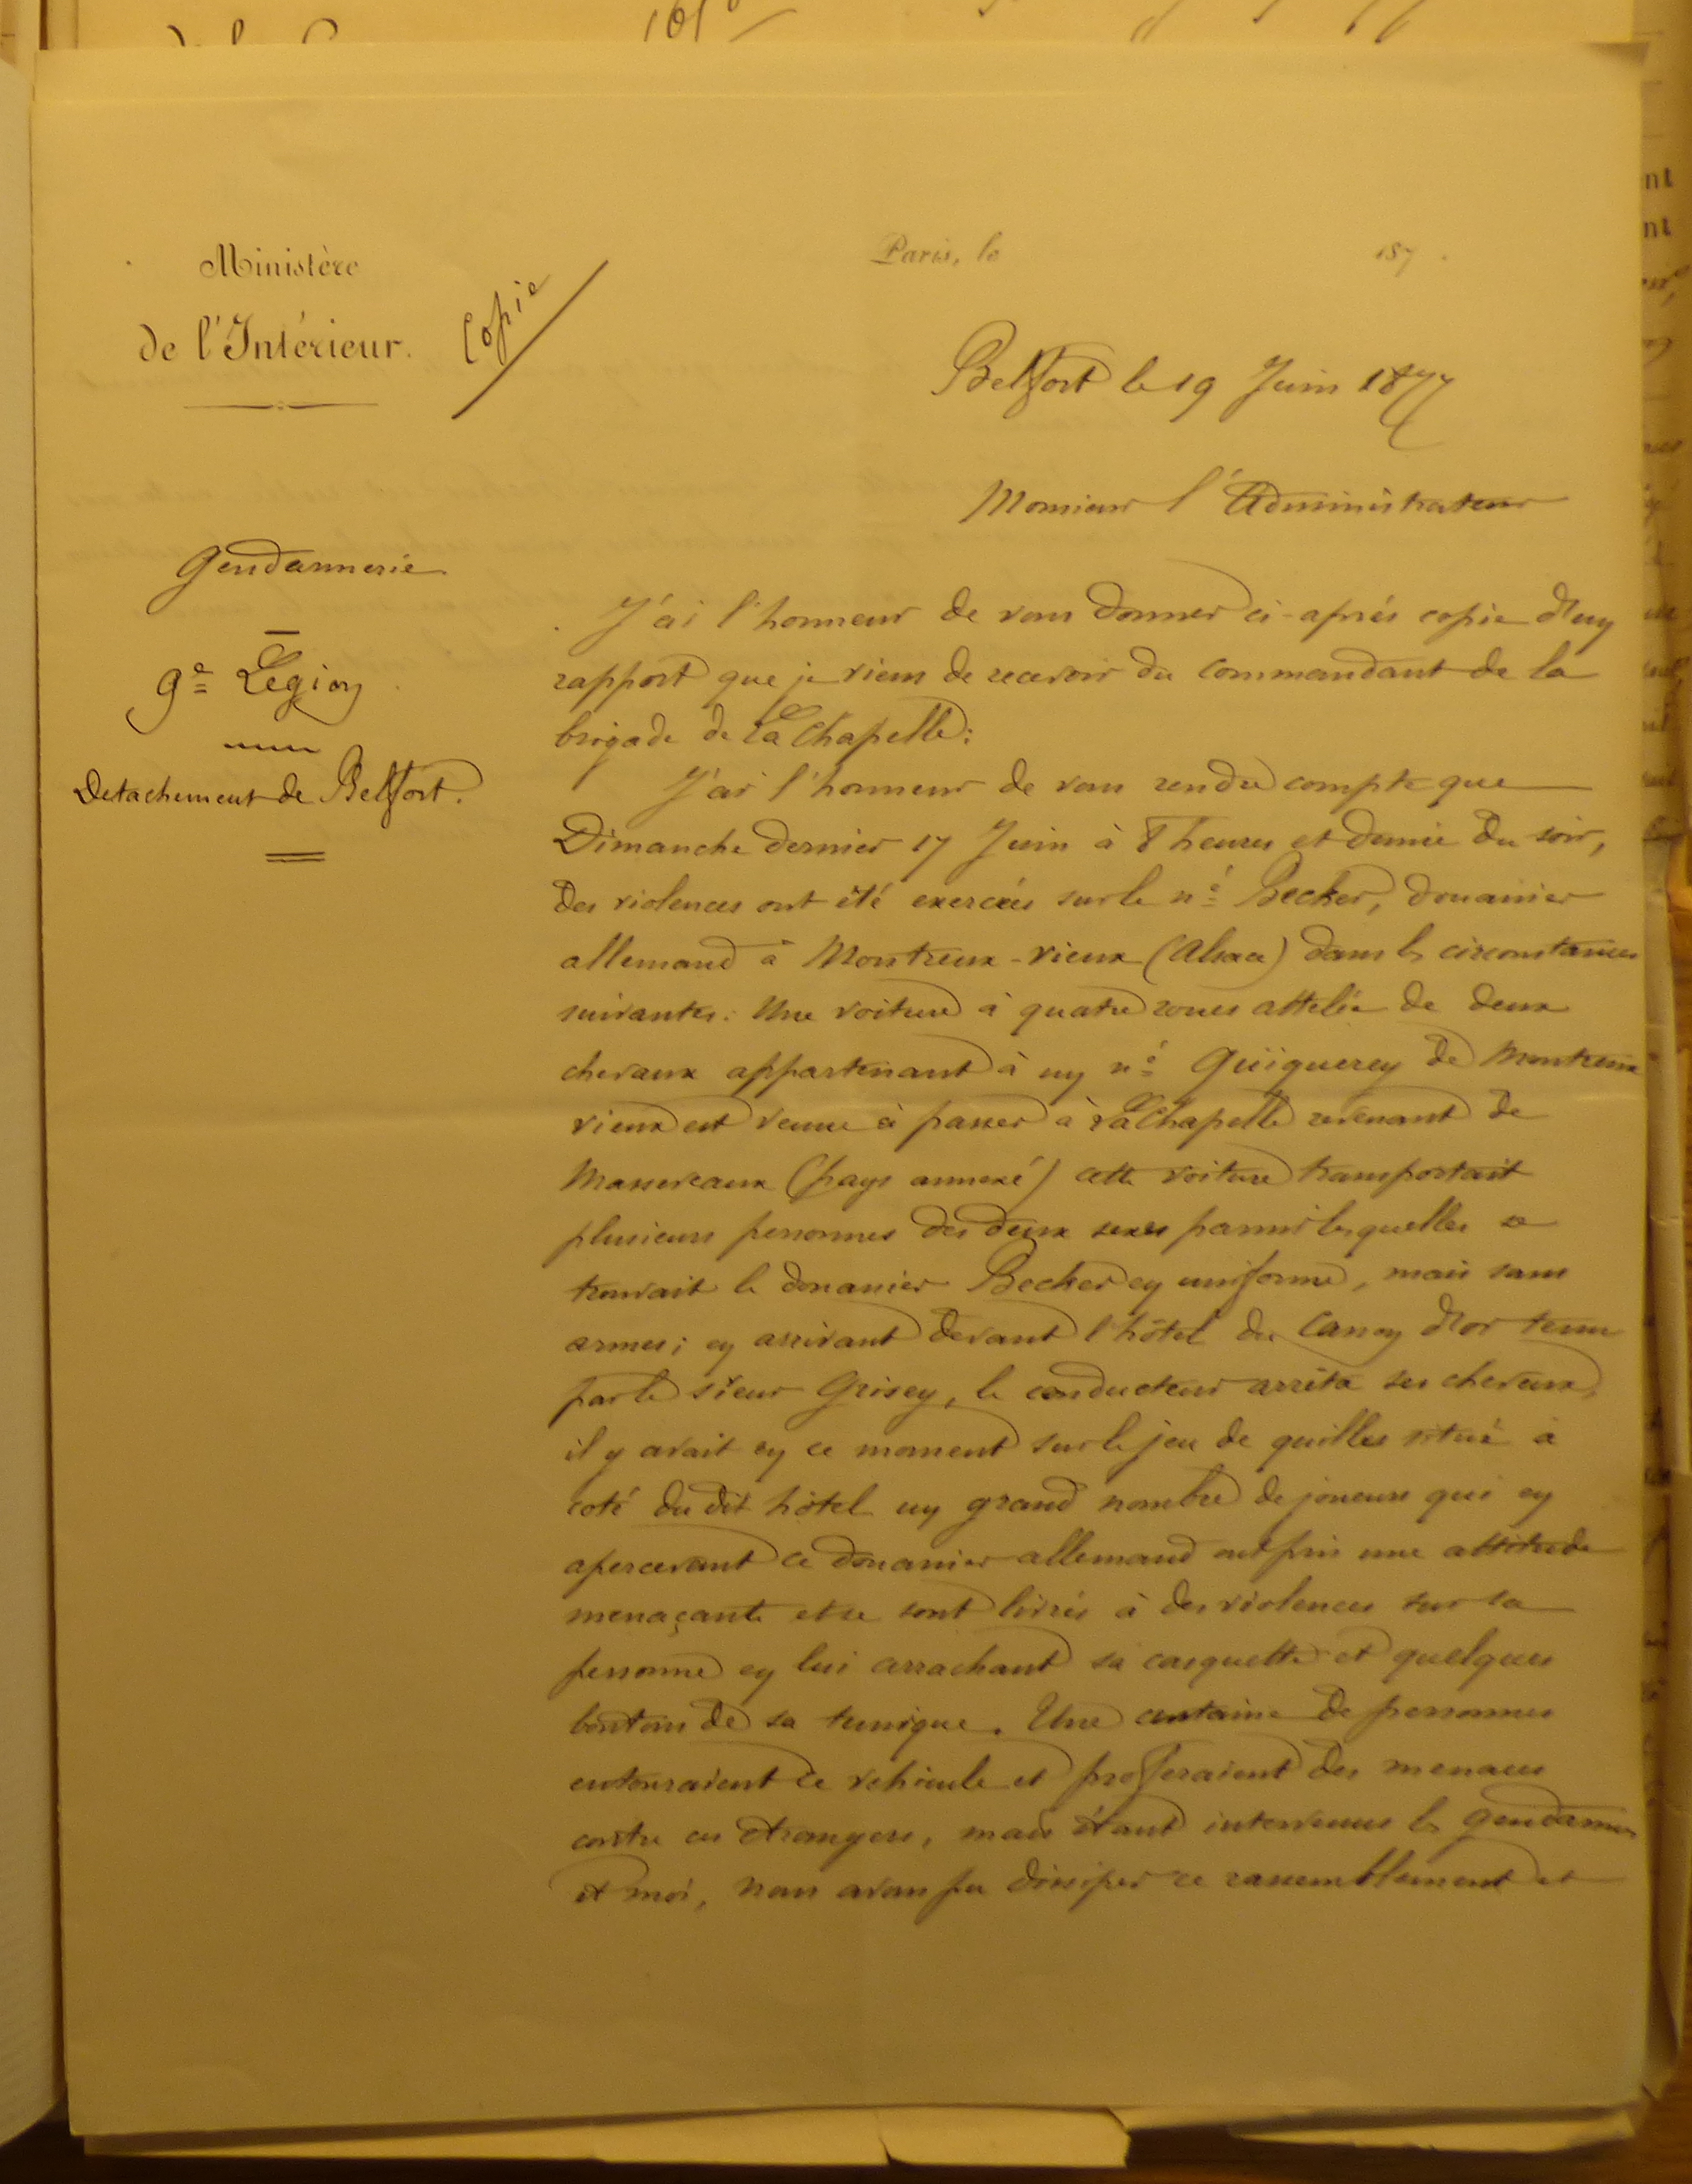 Ministère
de l'Intérieur.
Copie
Paris, le 187 .
Belfort le 19 Juin 1877
Monsieur l'Administrateur
Gendarmerie
9e Légion
Detachement de Belfort.
J'ai l'honneur de vous donner ci-après copie d'un
rapport que je viens de recevoir du commandant de la
brigade de La Chapelle:
J'ai l'honneur de vous rendre compte que
Dimanche dernier 17 Juin à 8 heures et demie du soir,
des violences ont été exercées sur le né Becker, douanier
allemand à Montreux-vieux (Alsace) dans les circonstances
suivantes: Une voiture à quatre roues attelée de deux
chevaux appartenant à un né Guiguerey de Montreux
vieux est venue à passer à La Chapelle revenant de
Massevaux (pays annexé) cette voiture transportait
plusieurs personnes des deux sexes parmi lesquelles se
trouvait le douanier Becker en uniforme, mais sans
armes; en arrivant devant l'hôtel du Canon d'or tenu
par le sieur Grisey, le conducteur arrêta ses chevaux,
il y avait en ce moment sur le jeu de quilles situé à
coté du dit hôtel un grand nombre de joueurs qui en
apercevant ce douanier allemand ont pris une attitude
menaçante et se sont livrés à des violences sur sa
personne en lui arrachant sa casquette et quelques
boutons de sa tunique. Une centaine de personnes
entouraient ce vehicule et profferaient des menaces
contre ces étrangers, mais étant intervenus les gendarmes
et moi, nous avons pu dissiper ce rassemblement et